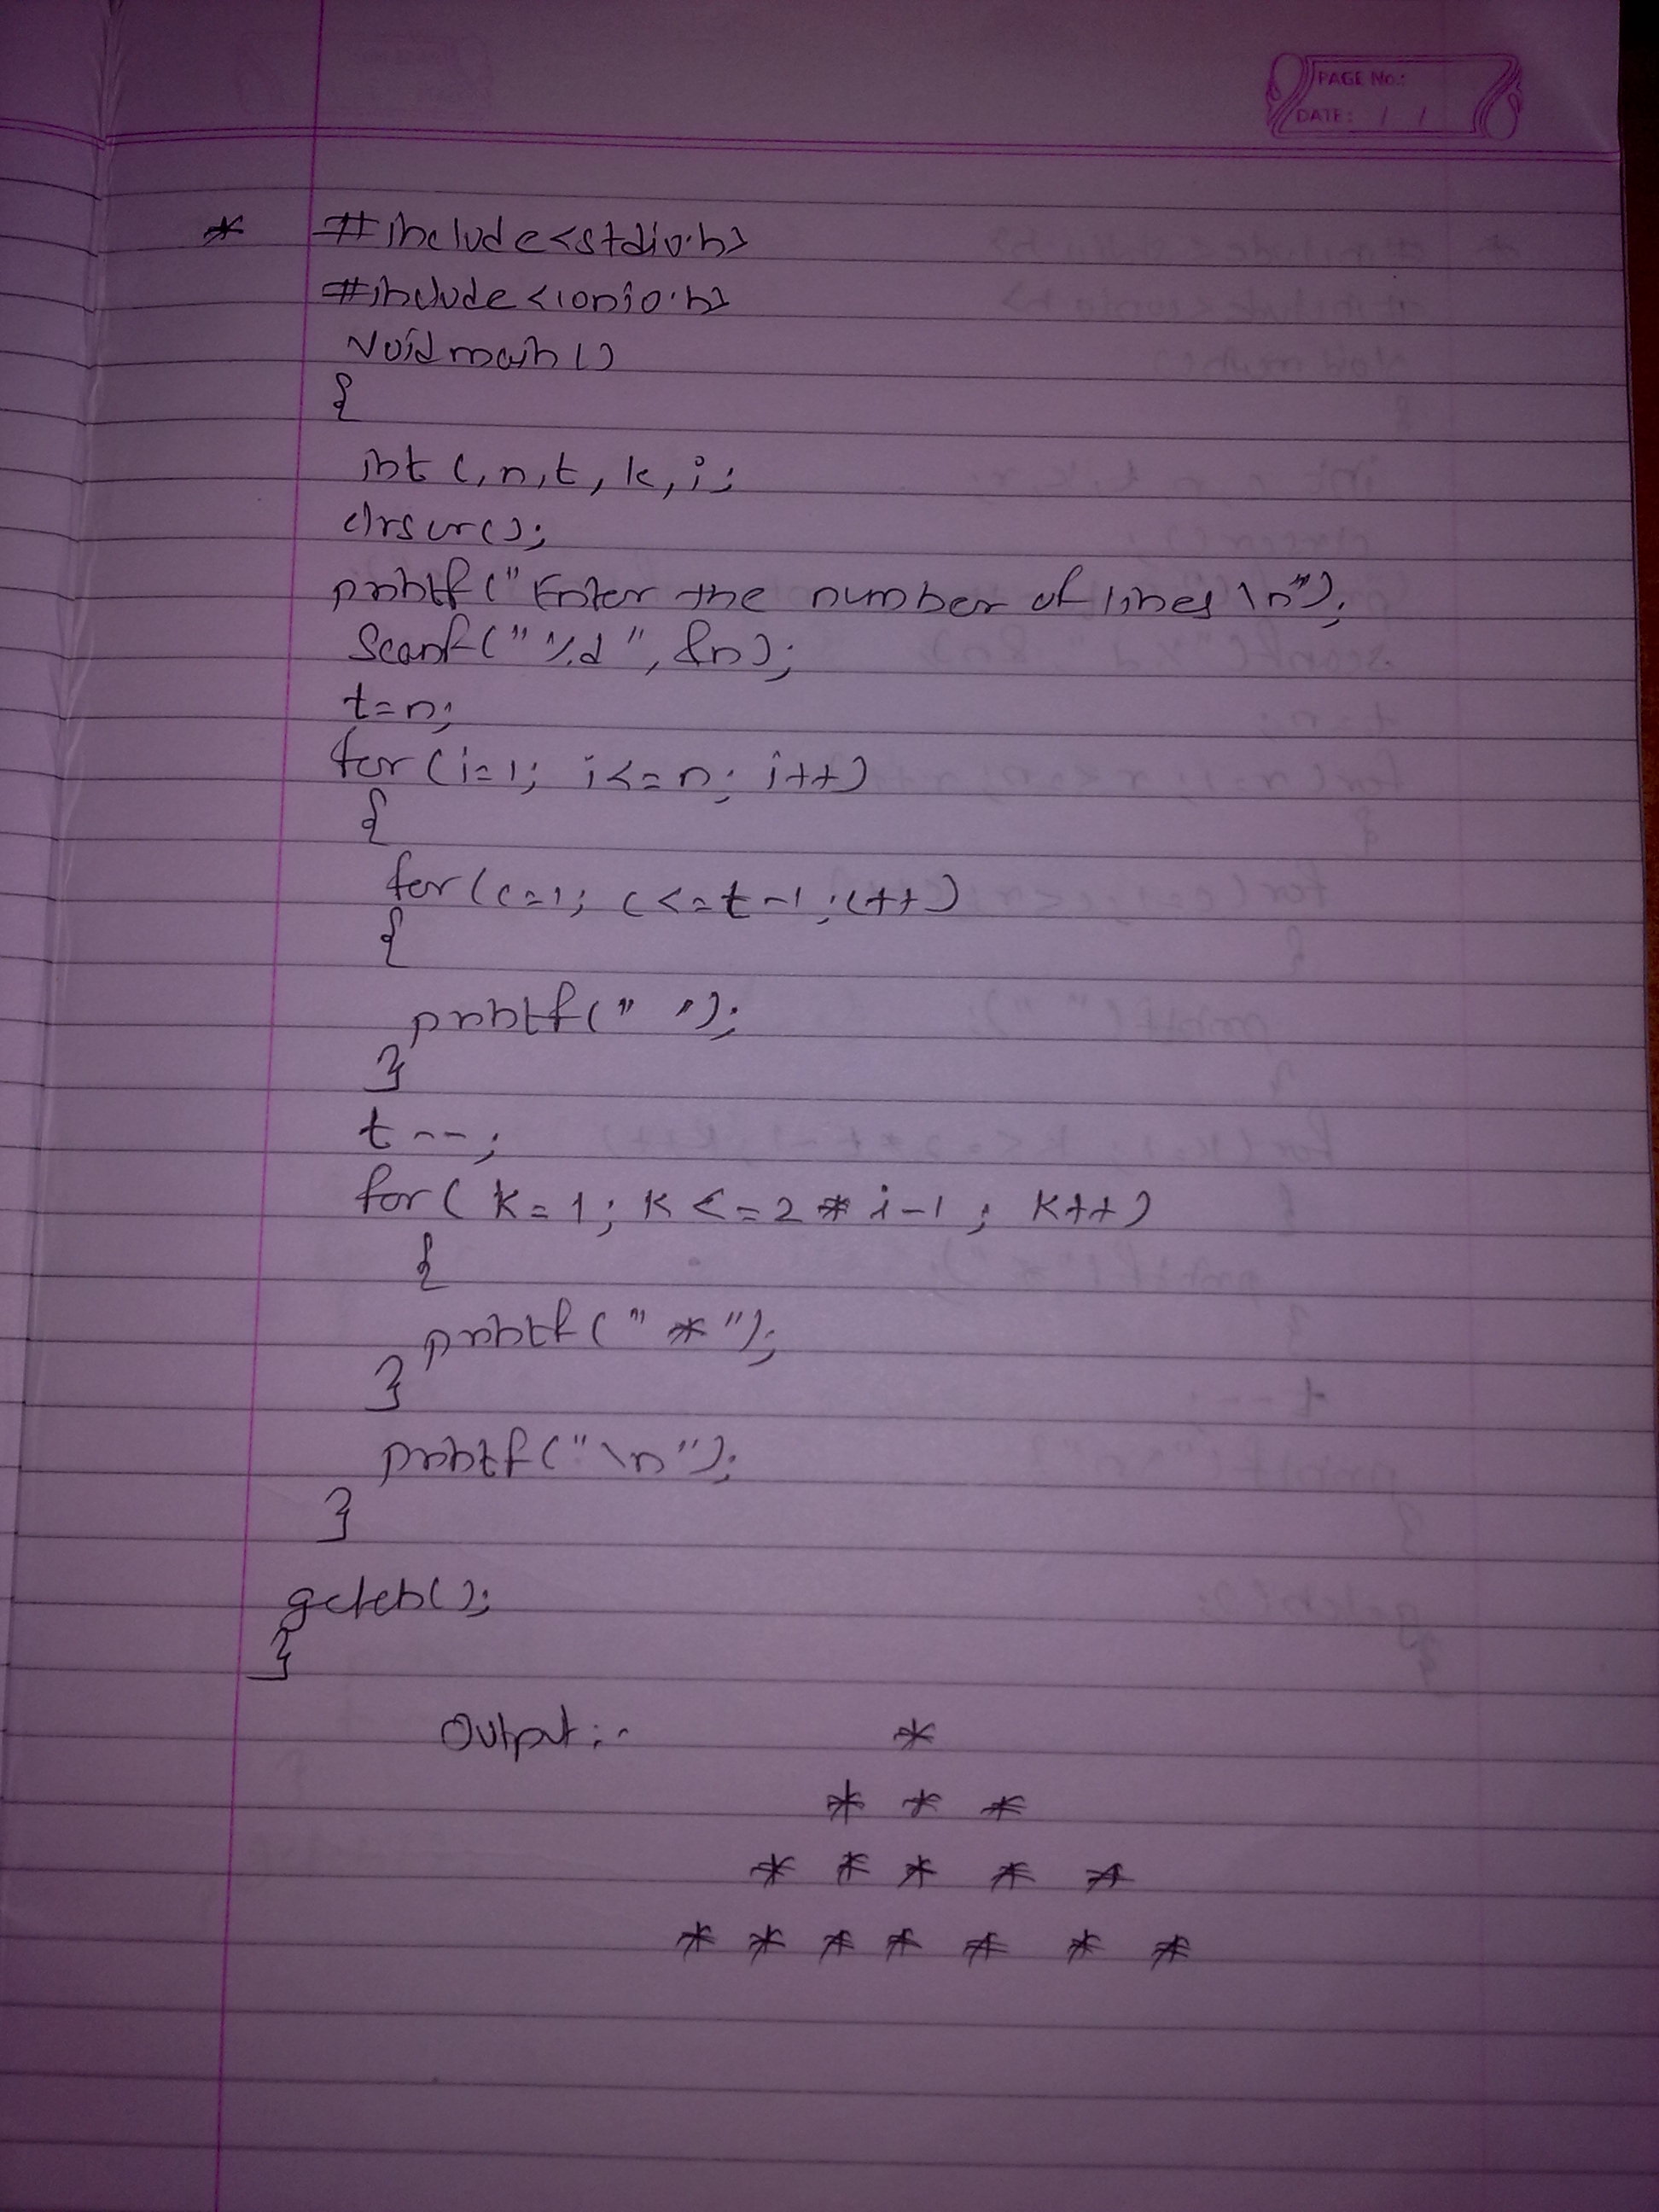 PAGE No.:
DATE: / /
* #include<stdio.h>
#include<conio.h>
void main()
{
int c,n,t,k,i;
clrscr();
printf("Enter the number of lines \n");
scanf("%d",&n);
t=n;
for(i=1; i<=n; i++)
{
for(c=1; c<=t-1;c++)
{
printf(" ");
}
t--;
for(k=1; k<=2*i-1; k++)
{
printf("*");
}
printf("\n");
}
getch();
}
Output:-
*
* * *
* * * * *
* * * * * * *